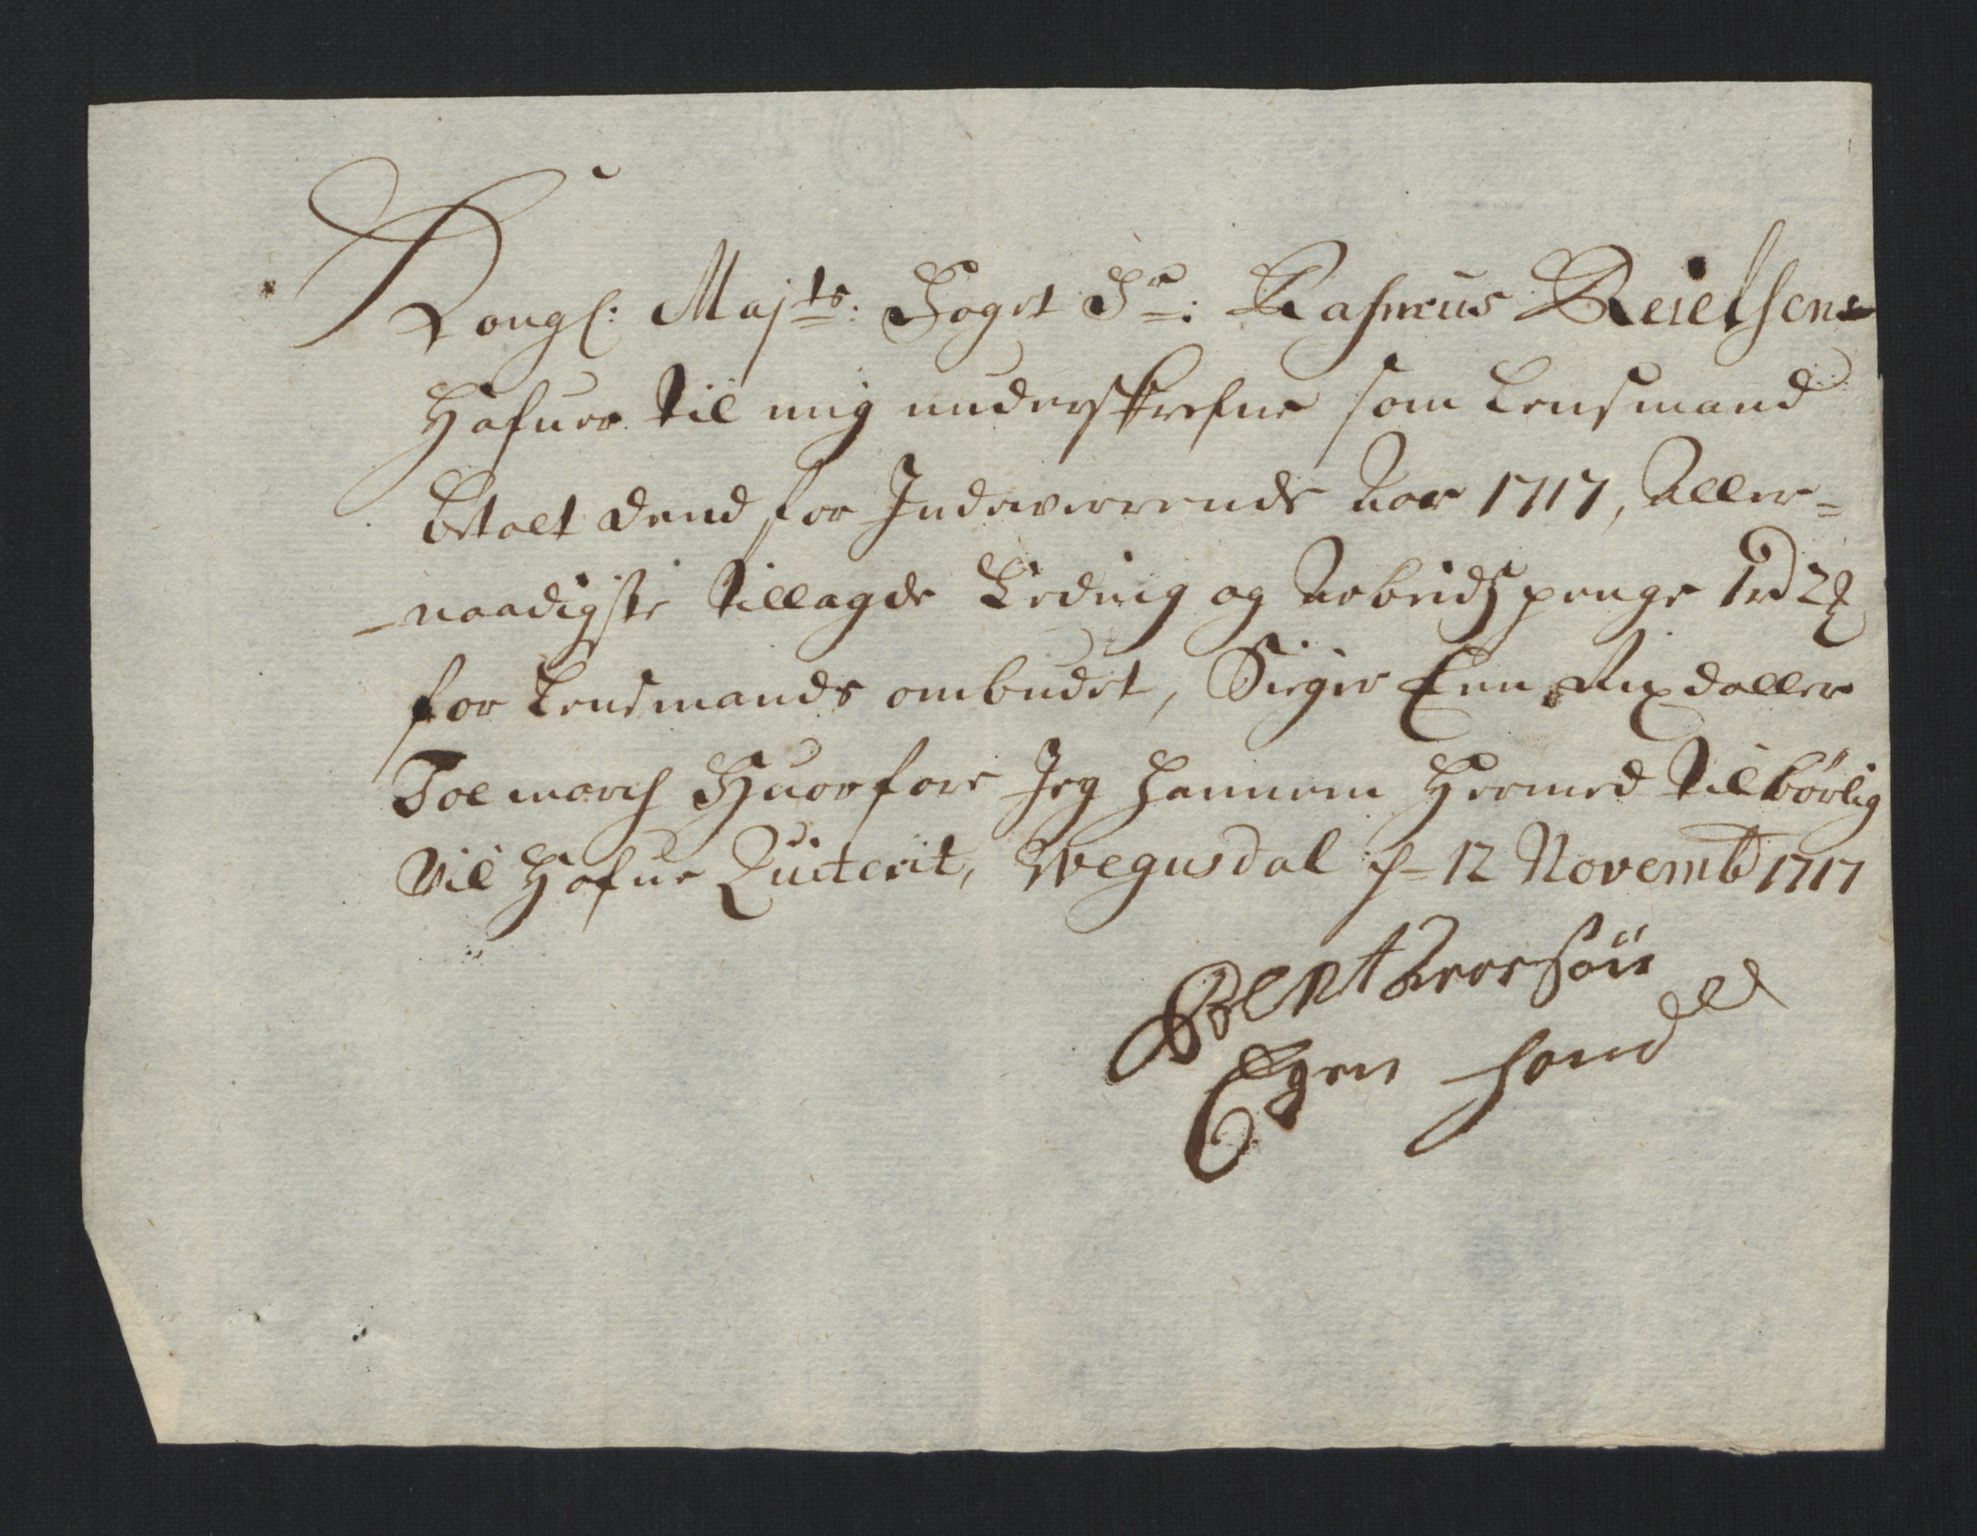 Kongl: Majts: Foget Sr: Rasmus Reielsen
Hafuer til mig underskrefne som Lensmand
betalt dend for Indeverrende Aar 1717, Aller=
naadigste tillagde Leding og Arbeidspenge 1 rd 2
for Lensmands ombudet, Siger Enn Rixdaller
Toe march Huorfore Jeg hannem Hermed tilbørlig
vil Hafue Quiterit, Wegusdal d 12 Novemb 1717
Bent
Egen Hand